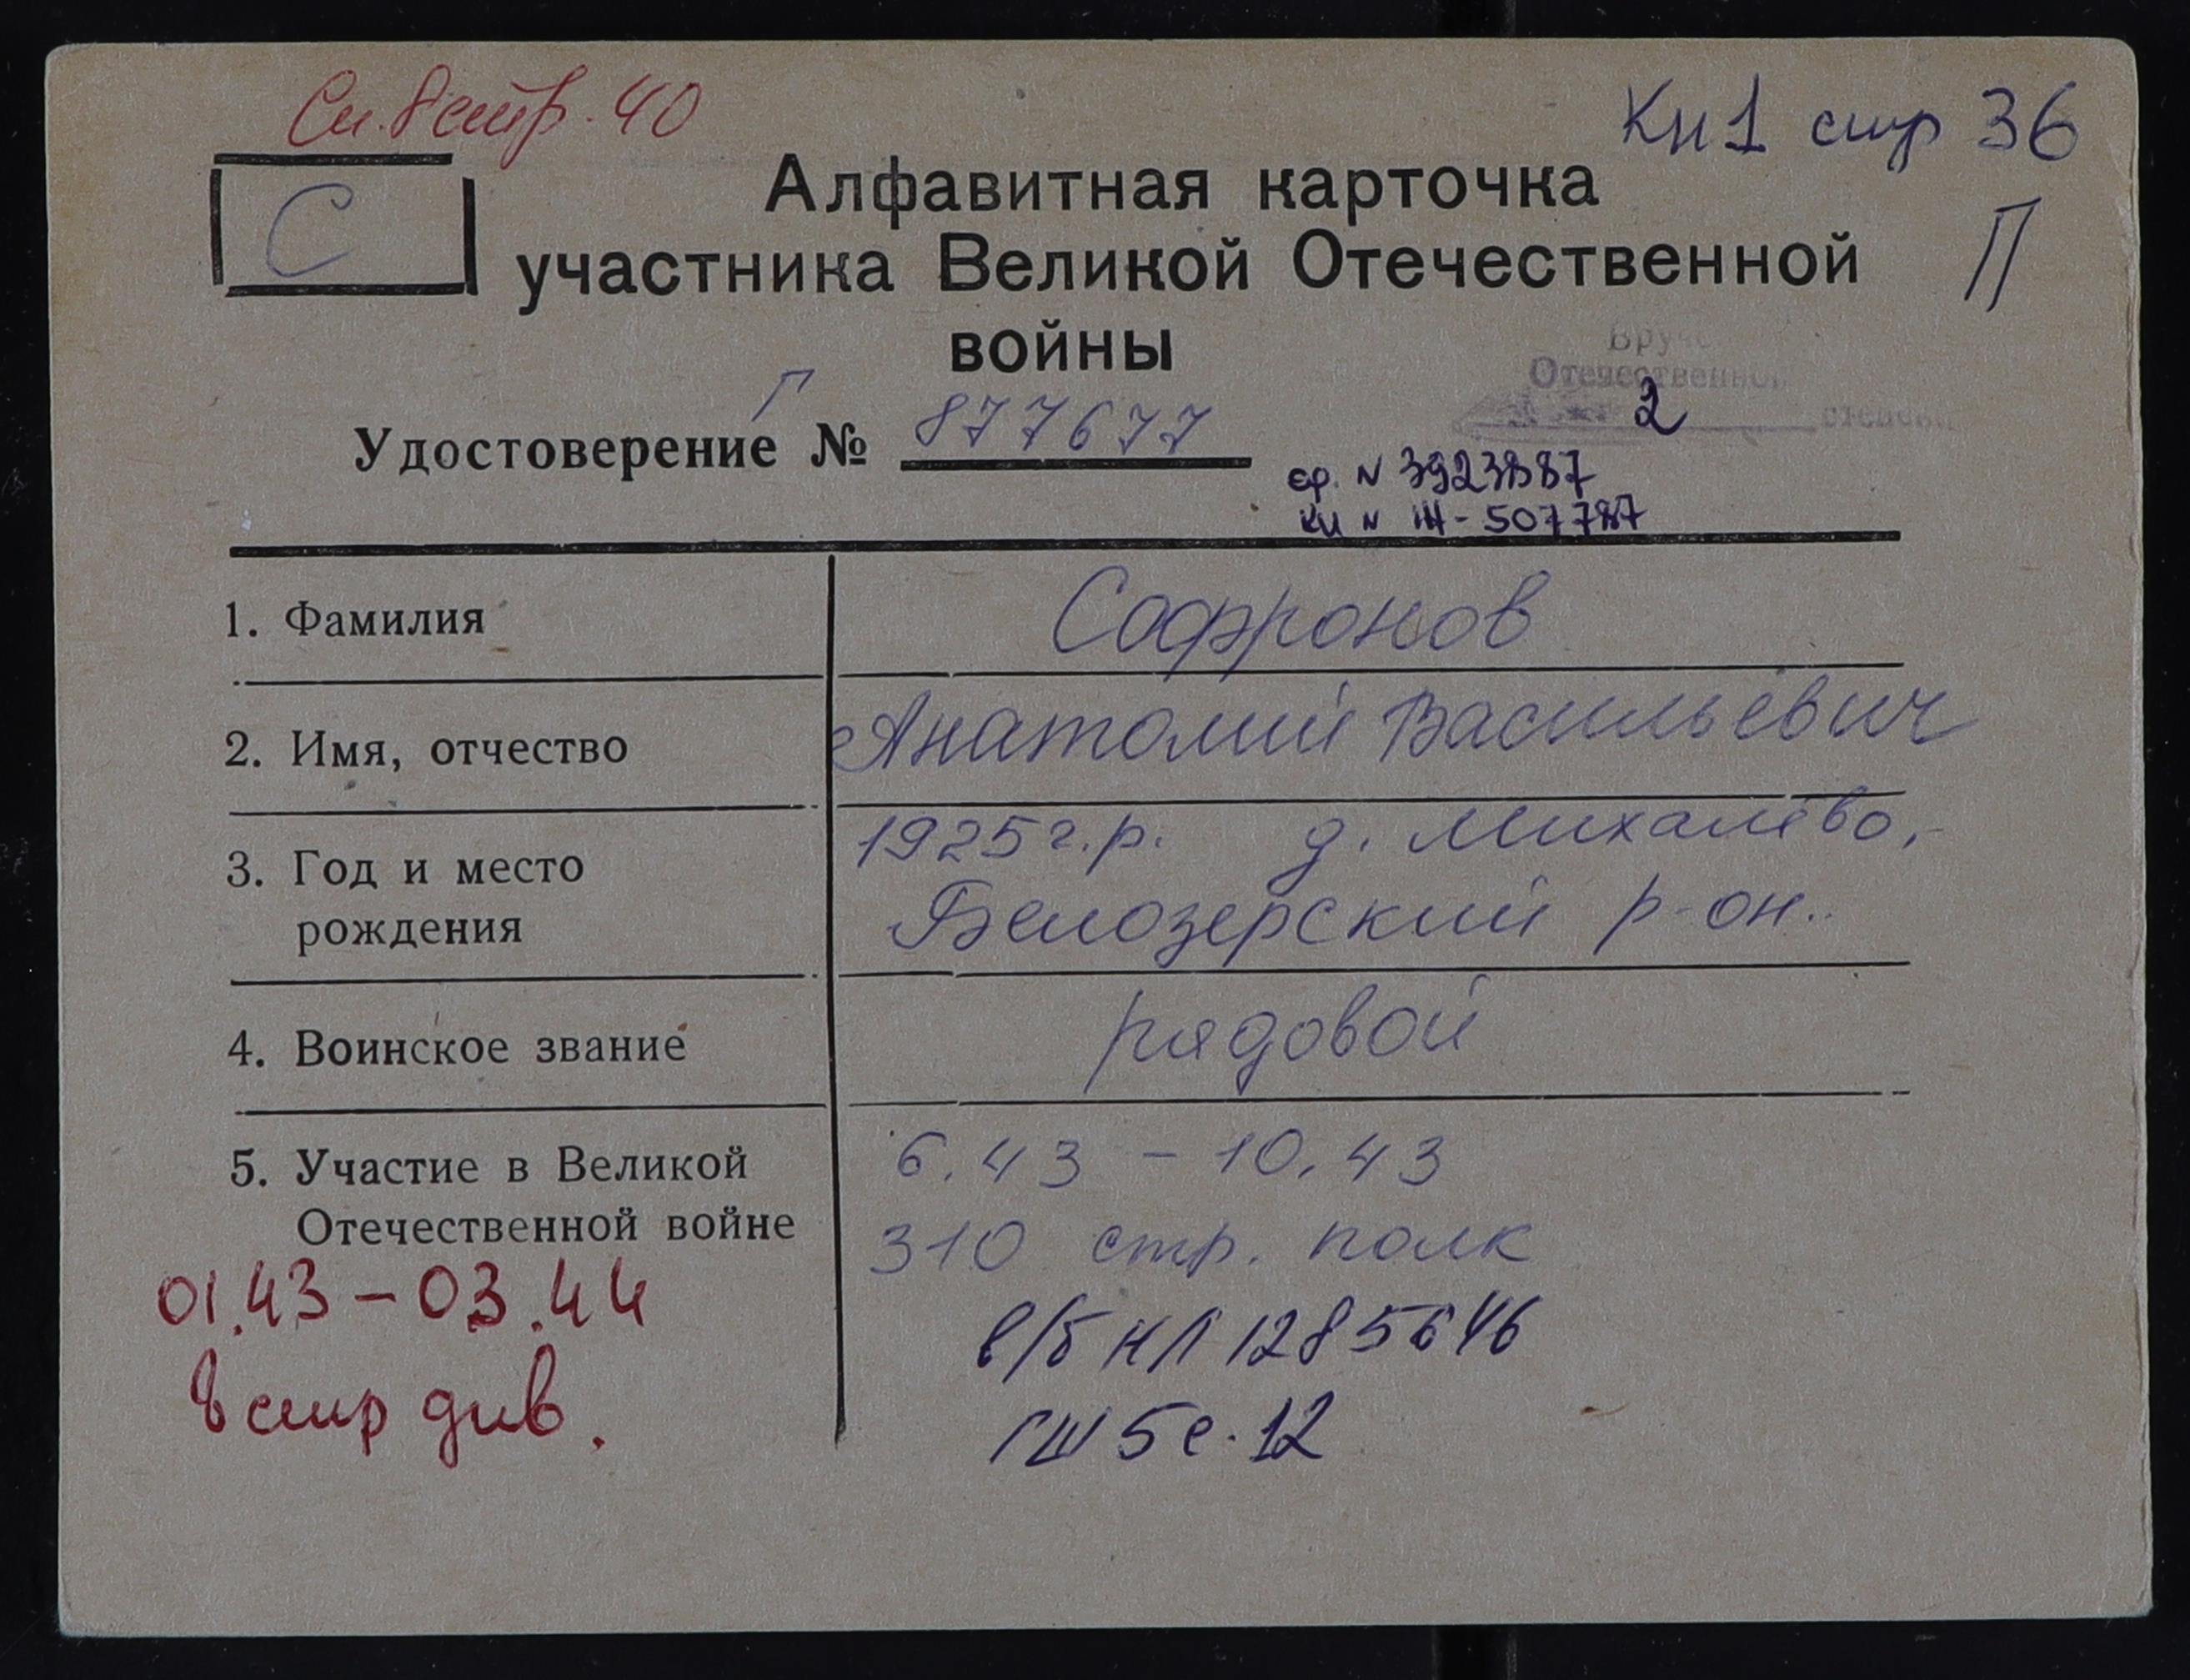 Сп. 8 стр. 40
Кн1 стр 36
С
П
Алфавитная карточка
участника Великой Отечественной
войны
Вруче
Отечественной
2 степени
Удостоверение Г № 877677
ор. N 3923887
кн N Ж- 507787
1. Фамилия
Софронов
2. Имя, отчество
Анатолий Васильевич
3. Год и место
рождения
1925 г.р. д. Михалёво,
Белозерский р-он.
4. Воинское звание
рядовой
5. Участие в Великой
Отечественной войне
6.43 - 10.43
310 стр. полк
01.43 - 03.44
8 стр див.
в/б НЛ 1285646
ГШ 5 с. 12